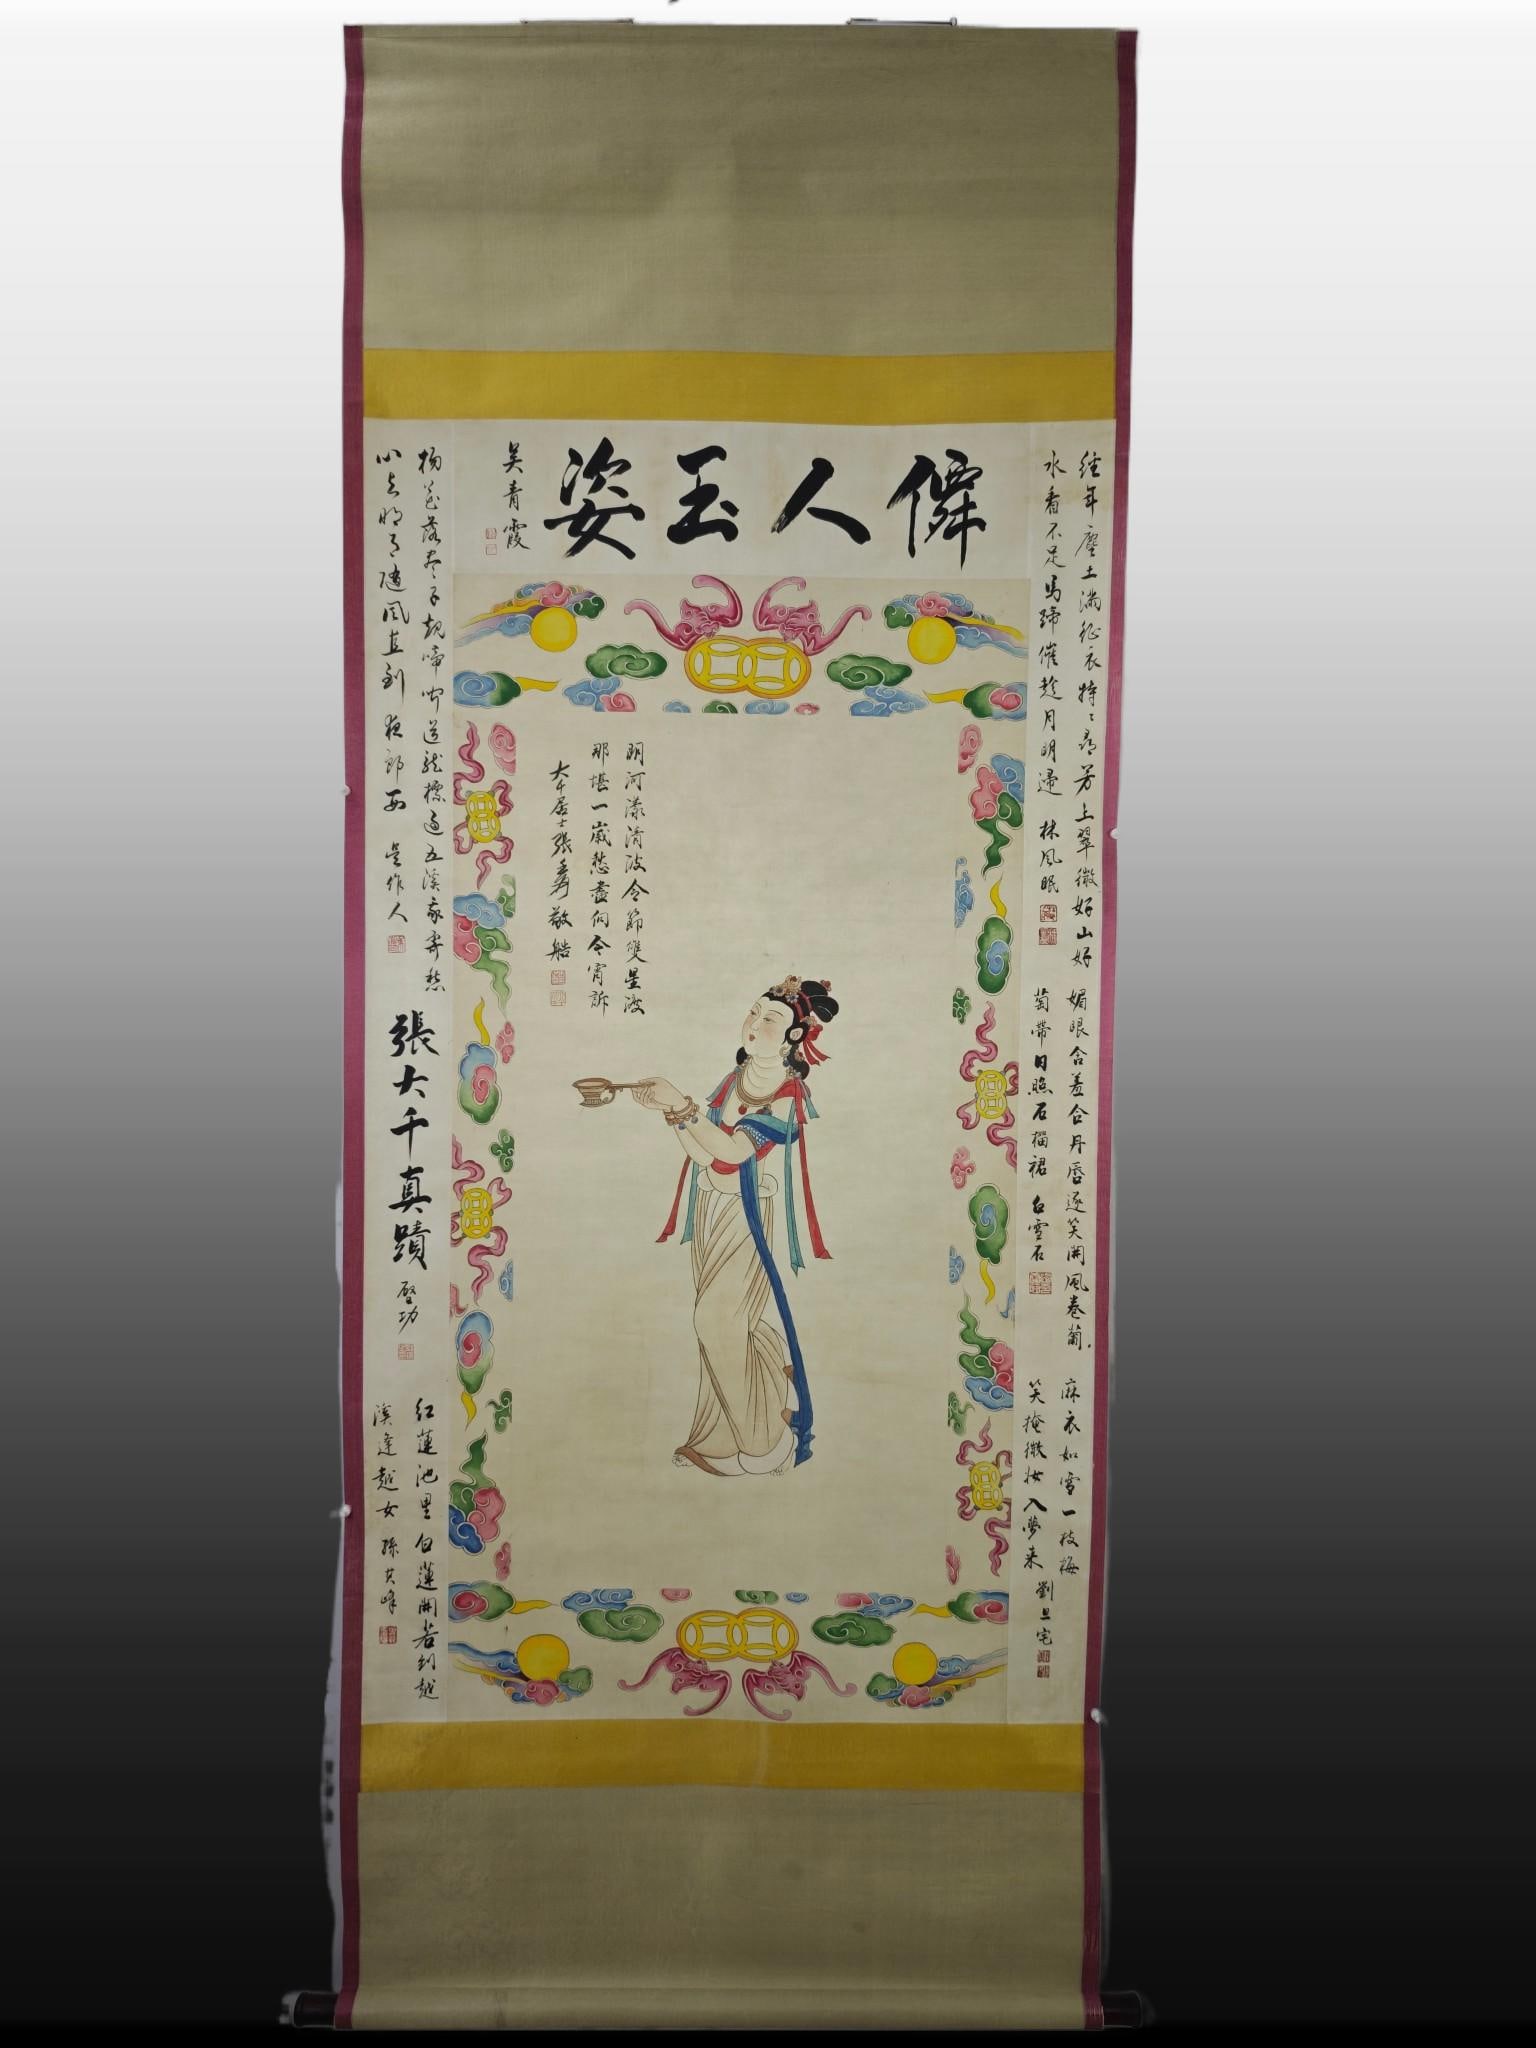 僊人玉姿
吴青霞
经年塵土满征衣特特尋芳上翠微好山好
水看不足馬蹄催趁月明歸 林风眠
媚眼含羞合丹唇逐笑開風卷葡
萄帶日照石榴裙 白雪石
麻衣如雪一枝梅
笑掩微妆入夢来 劉旦宅
明河漾清波令節雙星渡
那堪一歲愁盡向今宵訴
大千居士張爰敬
杨花落尽子规啼闻道龙標过五溪我寄愁
心与明月随风直到夜郎西 吴作人
張大千真蹟
啓功
红蓮池里白蓮開若到越
溪逢越女 孫其峰